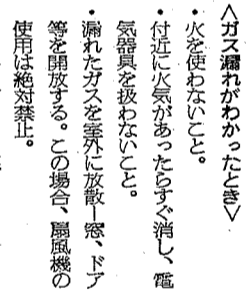 〈ガス漏れがわかったとき〉
・火を使わないこと。
・付近に火気があったらすぐ消し、電
気器具を扱わないこと。
・漏れたガスを室外に放散ー窓、ドア
等を開放する。この場合、扇風機の
使用は絶対禁止。